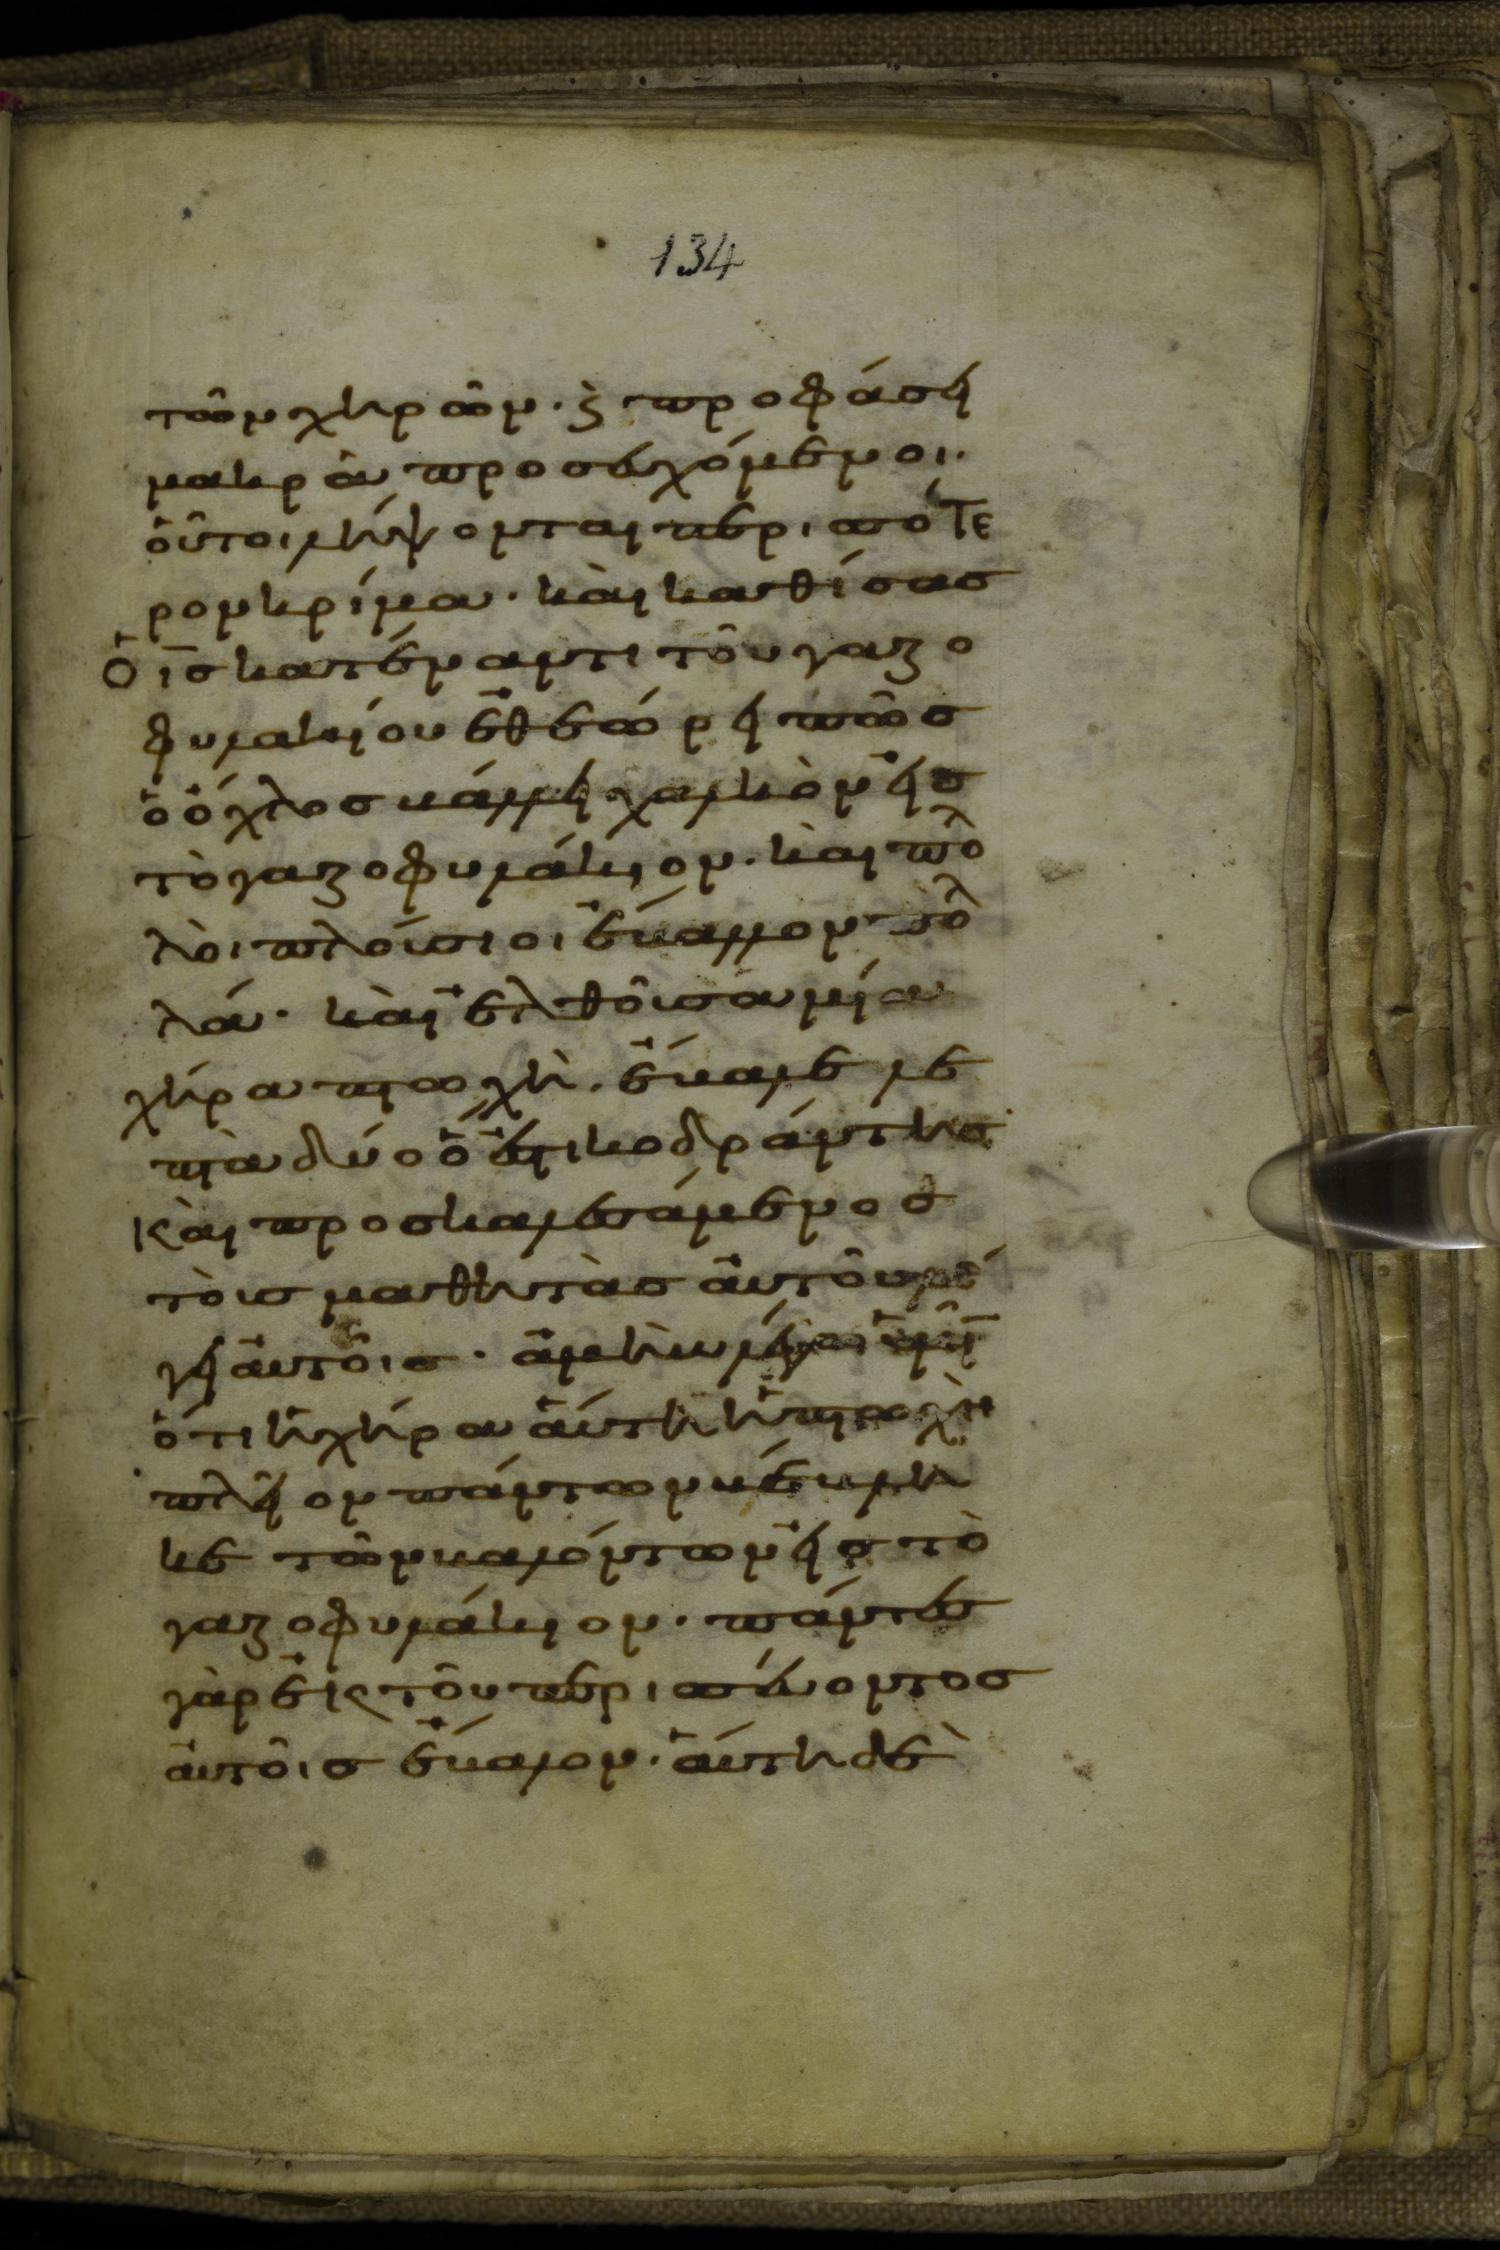 134
τῶν χηρῶν· ϗ προφάσει
μακρὰ προσευχόμενοι·
οὗτοι λήψονται περισσότε
ρον κρίμα· καὶ καθίσας
Ὁ ι̅ς κατέναντι τοῦ γαζο
φυλακίου ἐθεώρει πῶς
ὁ ὄχλος βάλλει χαλκὸν εἰς
τὸ γαζοφυλάκιον· καὶ πολ
λοὶ πλούσιοι ἔβαλλον πολ
λά· καὶ ἐλθοῦσα μία
χήρα πτωχὴ· ἔβαλε λε
πτὰ δύο ὅ ἐστι κοδράντης
Καὶ προσκαλεσάμενος
τοὺς μαθητὰς αὐτοῦ λέ
γει αὐτοῖς· ἀμὴν λέγω ὑμῖ̅
ὅτι ἡ χήρα αὕτη ἡ πτωχὴ
πλεῖον πάντων βέβλη
κε τῶν βαλόντων εἰς τὸ
γαζοφυλάκιον· πάντες
γὰρ ἐκ τοῦ περισσεύοντος
αὐτοῖς ἔβαλον· αὕτη δὲ